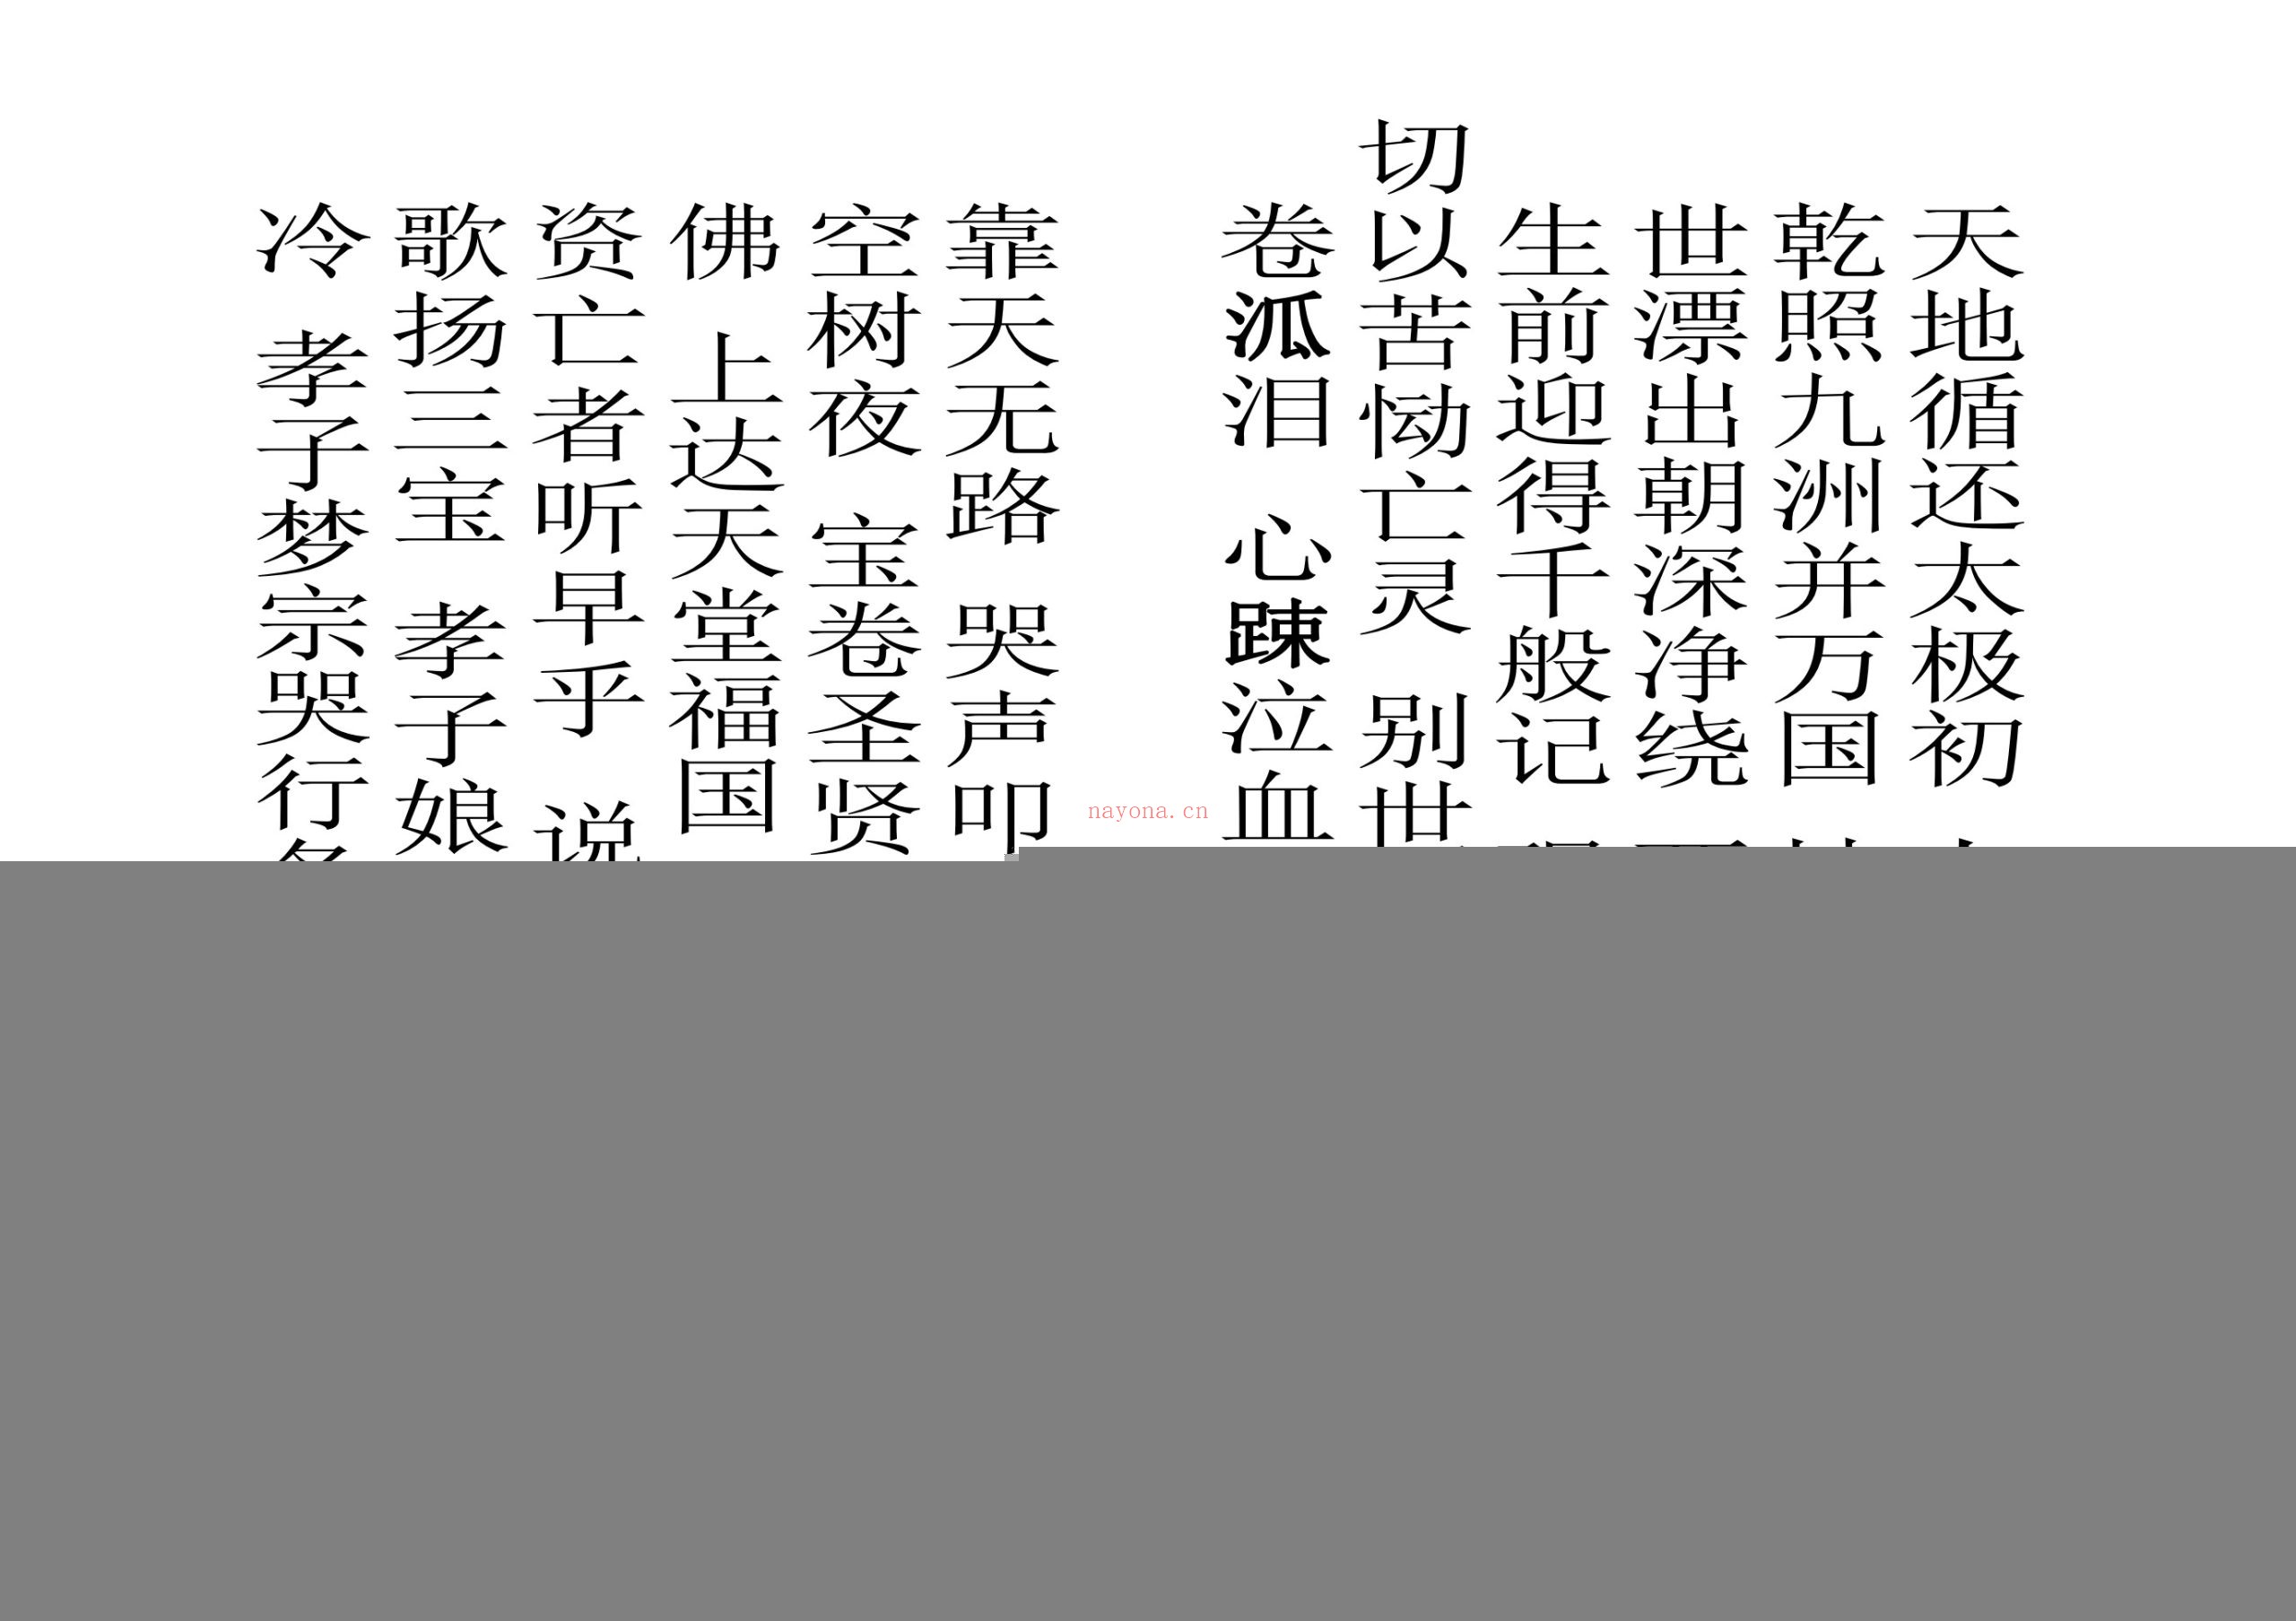 天地循还大极初
乾照无洲并万国
世濟出朝深淨绕
生前迎得千般记
切以苦恸亡灵 别世
卷派泪 心 泣血
靠天无 路 哭声叩
空树夜 宝卷圣贤
佛 上达天堂福国
资亡者听早平 说
歌扬三宝 孝子娘
冷 孝子梦宗哭行
nayona.cn